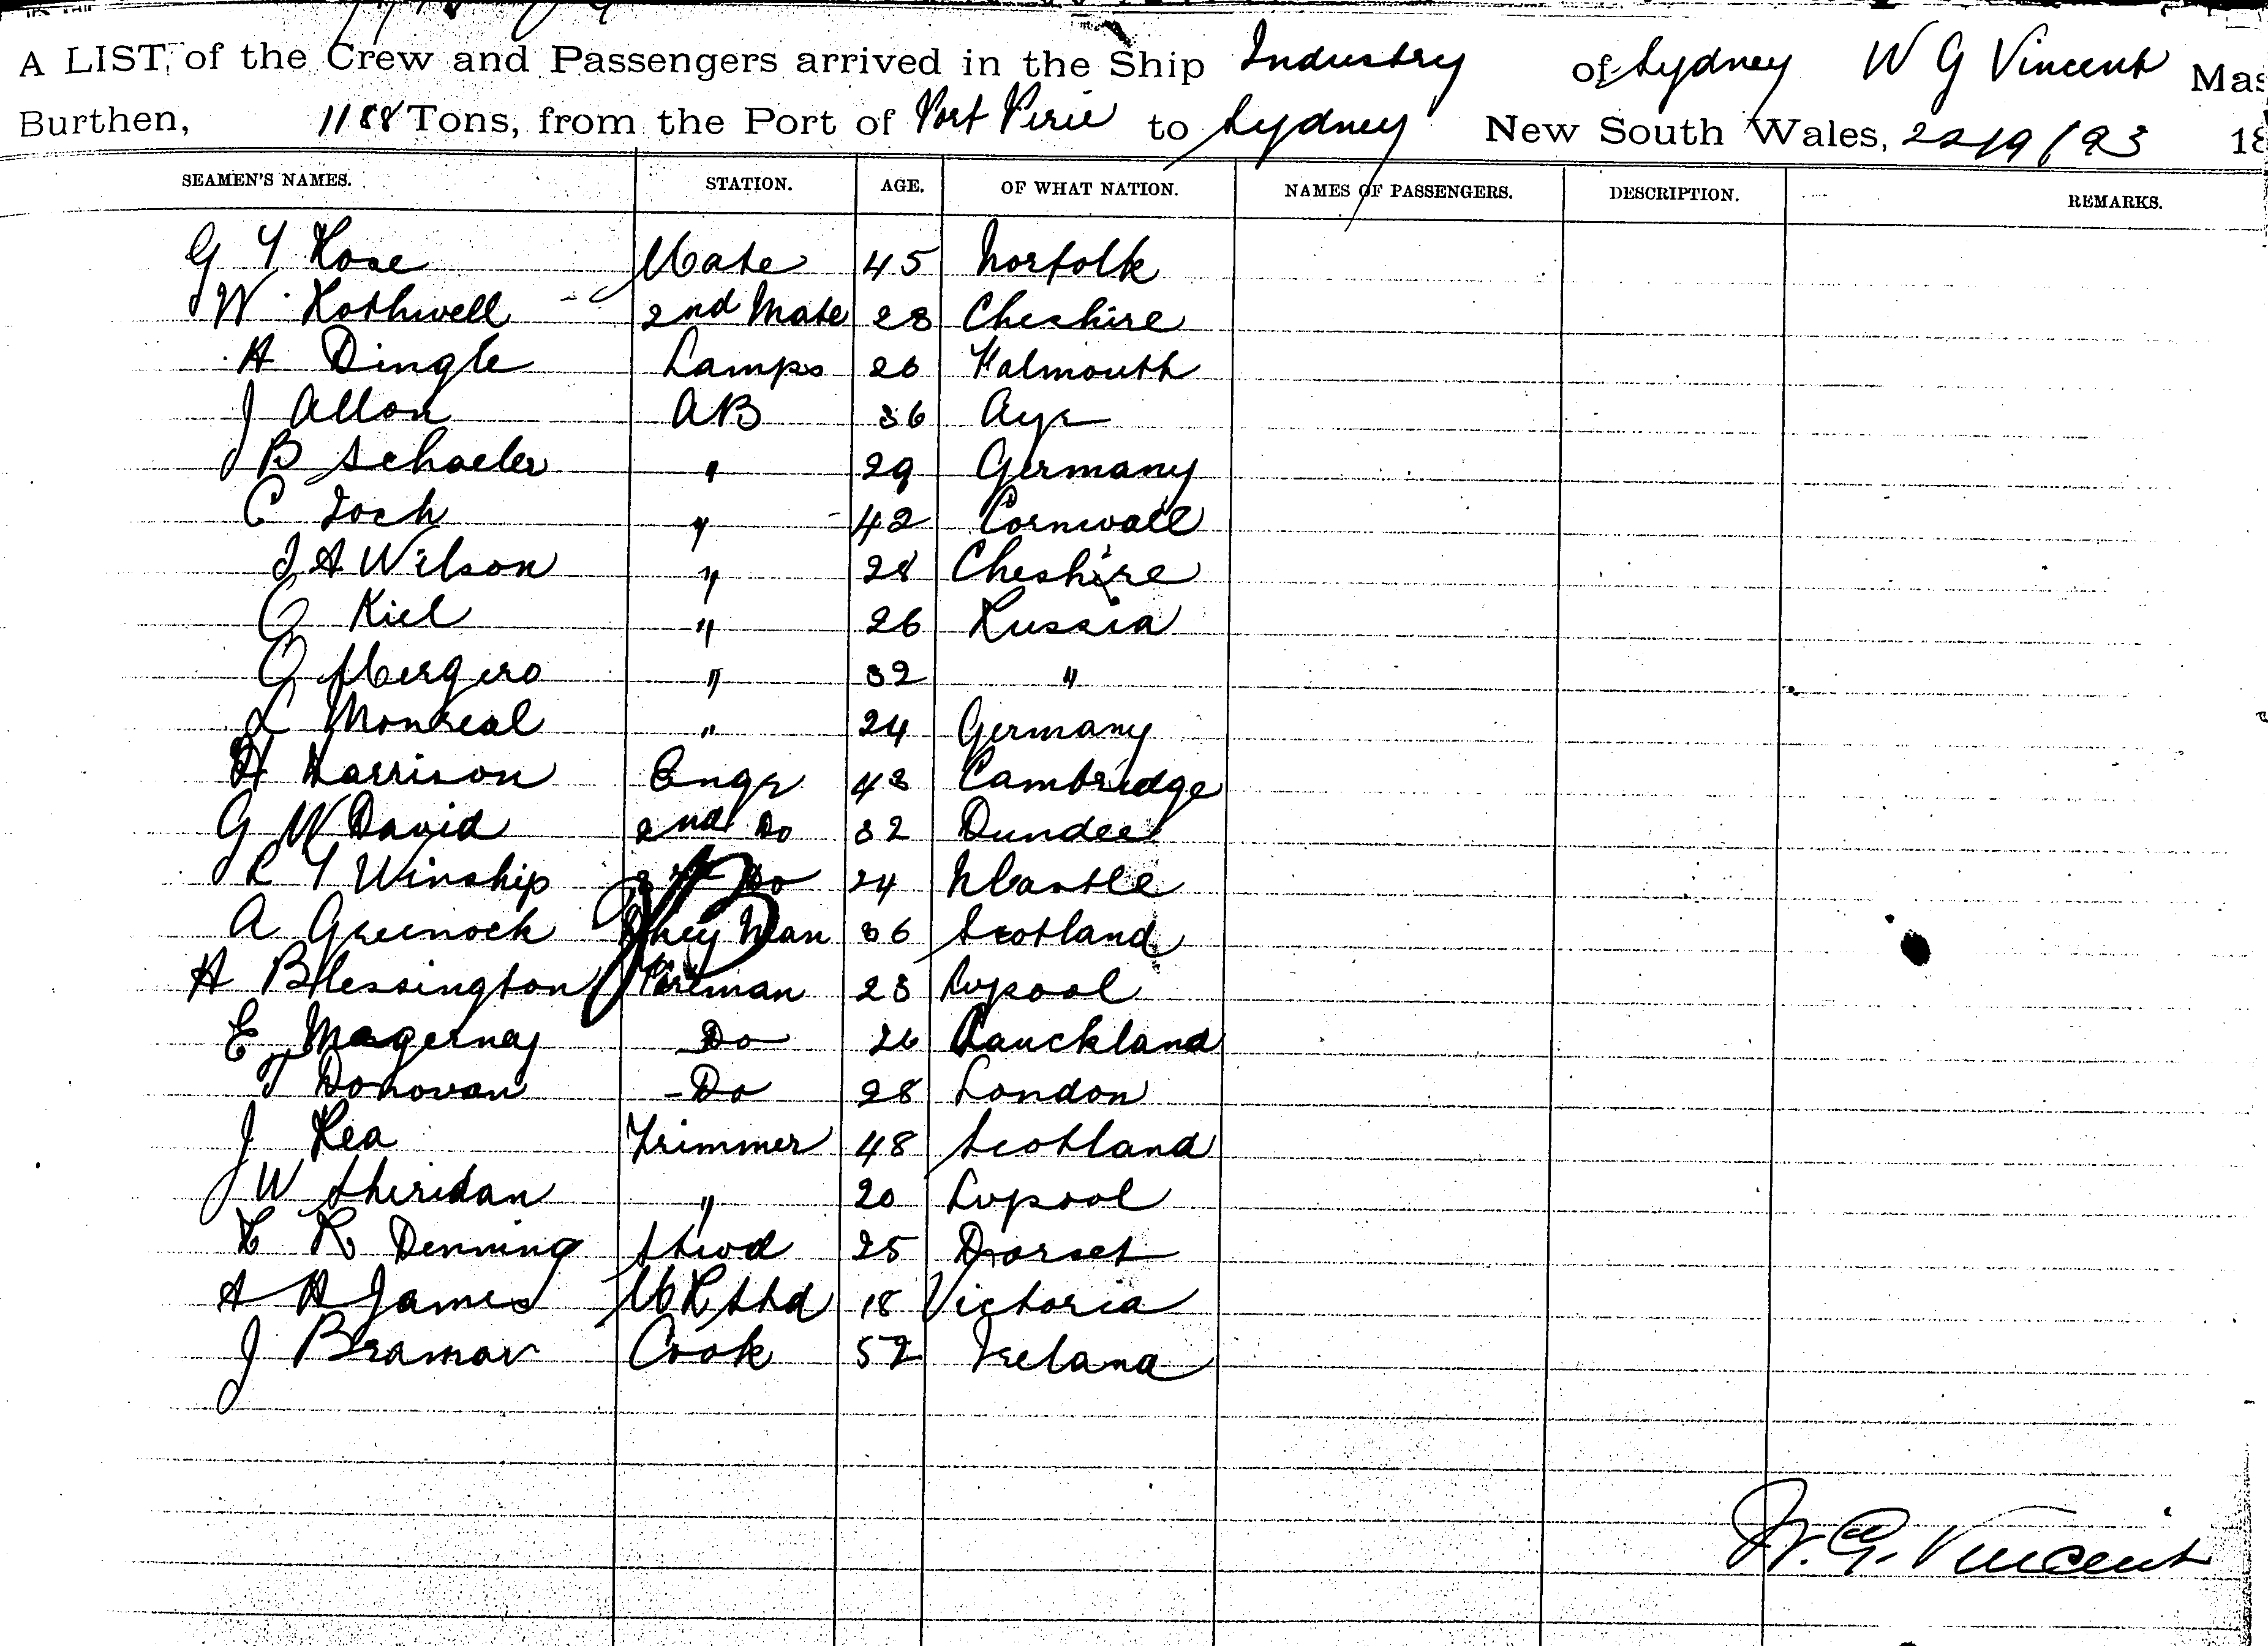 A LIST, of the Crew and Passengers arrived in the Ship Industry of Sydney W G Vincent Mas
Burthen, 1188 Tons, from the Port of Port Pirie to Sydney New South Wales, 22/9/93 18
SEAMEN'S NAMES. STATION. AGE. OF WHAT NATION. NAMES OF PASSENGERS. DESCRIPTION. REMARKS.
G Y Rose Mate 45 Norfolk
W Rothwell 2nd Mate 28 Cheshire
A Dingle Lamps 26 Falmouth
J Allon AB 36 Ayr
B Schaeler " 29 Germany
C Loch " 42 Cornwall
J A Wilson " 28 Cheshire
C Kiel " 26 Russia
O Mergero " 32 "
L Monreal " 24 Germany
H Harrison Engr 43 Cambridge
G W David 2nd Do 32 Dundee
R Y Winship Do 24 NCastle
A Greenock Man 36 Scotland
H Blessington Fireman 23 Lvpool
E Magernay Do 26 Auckland
T Donovan Do 28 London
J Rea Trimmer 48 Scotland
J W Sheridan " 20 Lvpool
H R Denning Stwd 25 Dorset
A H James M R Std 18 Victoria
J Bramar Cook 52 Ireland
W. G. Vincent